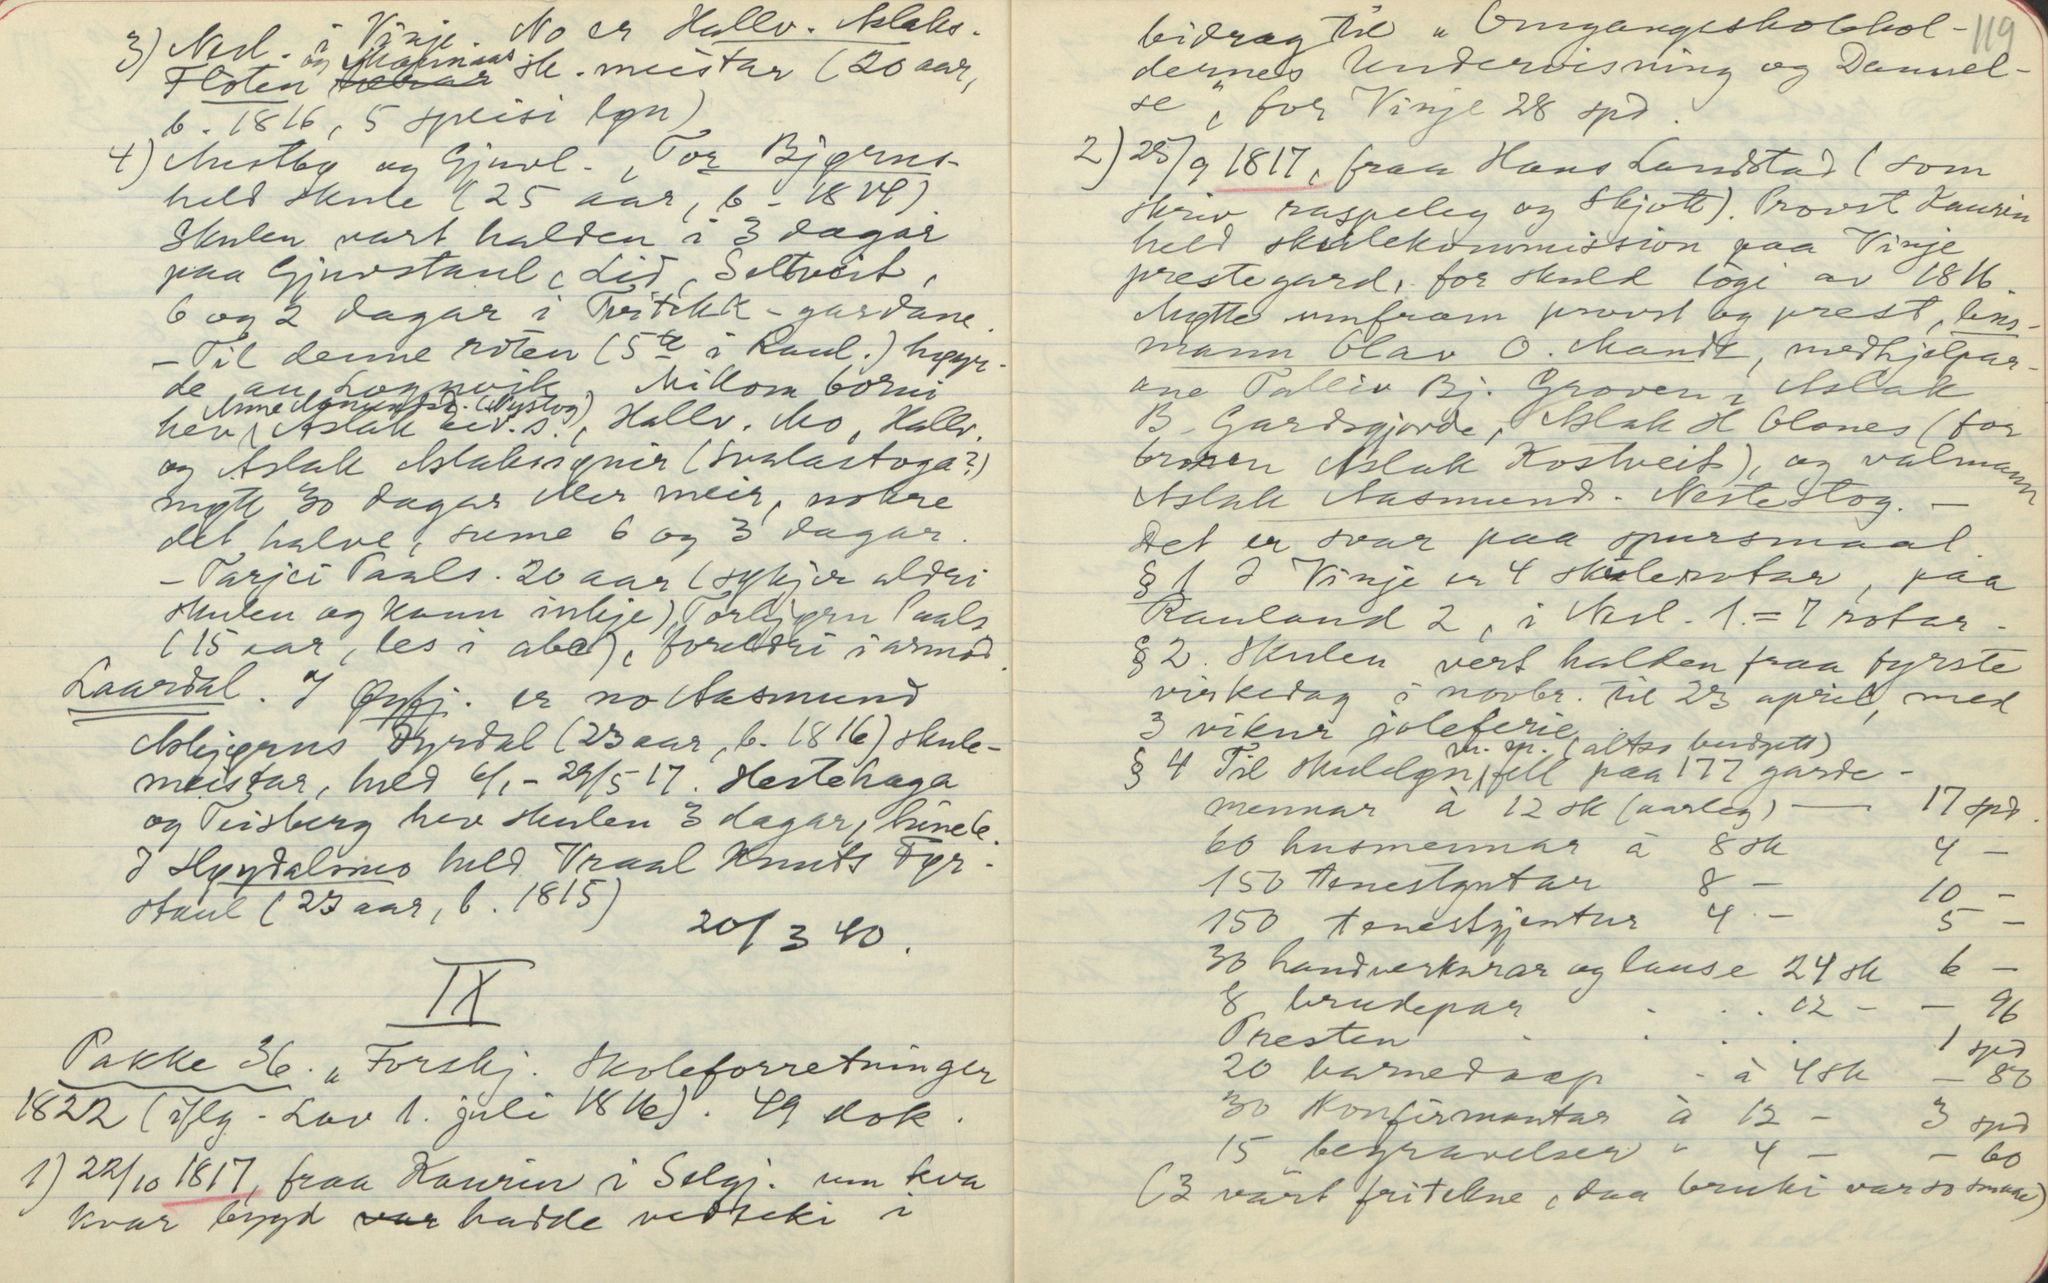 3) Nesl. i Vinje. No er Hallv. Aslaks.
Flóten og sk. meistar (20 aar,
b. 1816, 5 speisi løn)
4) Mestby og Gjuvl., Tor Bjørns.
held skule (25 aar, b. 1814)
Skulen vart halden i 3 dagar
paa Gjuvstaul, Lid, Seltveit,
6 og 2 dagar i Tveitekk-gardane.
- Til denne roten (5te i Raul.) høyr-
de au Lognvik. Millom borni
(Nystog)
hev Aslak Eiv.s., Hallv. Mo, Hallv.
og Aslak Aslaksynir (Svalastoga?)
møtt 30 dagar eller meir, nokre
det halve, sume 6 og 3 dagar.
- Tarjei Paals. 20 aar (sykjer aldri
skulen og kann inkje), Torbjørn Paals
(15 aar, les i abc), foreldri i armod.
Laardal. I Øyfj. er no Aasmund
Asbjørns Fyrdal (23 aar, b. 1816) skule-
meistar, held 6/1 - 29/5 17. Hestehaga
og Teisberg hev skulen 3 dagar,
I Høydalsmo held Vraal Knuts Fyr-
staul (23 aar, b. 1815)
20/3 40.
IX
Pakke 36. "Forskj. Skoleforretninger
1822 (iflg. Lov 1. juli 1816). 49 dok.
1) 22/10 1817, fraa Kaurin i Selgj. um kva
kvar bygd var hadde vedteki i
119
bidrag til "Omgangsskolehol-
dernes Undervisning og Dannel-
se", for Vinje 28 spd.
2) 25/9 1817, fraa Hans Landstad (som
skriv raspeleg og skjott). Provst Kaurin
held skulekommission paa Vinje
prestegard, for skuld logi av 1816.
Møtte umfram provst og prest, lens-
mann Olav O. Mandt, medhjelpar-
ane Talleiv Bj. Groven, Aslak
B. Gardsgjorde, Aslak H Olanes (for
broren Aslak Kostveit), og valmann
Aslak Aasmunds. Nestestog. -
Det er svar paa spursmaal.
§ 1 I Vinje er 4 skulerotar, paa
Rauland 2, i Nesl. 1. = 7 rotar.
§ 2. Skulen vert halden fraa fyrste
virkedag i novbr. til 23 april, med
3 vikur joleferie.
m. m. (altso budgett)
§ 4 Til skuleløn fell paa 177 garde-
mennar à 12 sk (aarleg) — 17 spd.
60 husmennar à 8 sk 4 -
150 tenestgutar 8 - 10 -
150 tenestgjentur 4 - 5 -
30 handverkarar og lause 24 sk 6 -
8 brudepar . . . 12 - - 96
Presten . . . . 1 spd
20 barnedaap - à 4 sk - 80
30 konfirmantar à 12 - 3 spd
15 begravelser " 4 - - 60
(3 vart fritekne, daa bruki var so smaae)